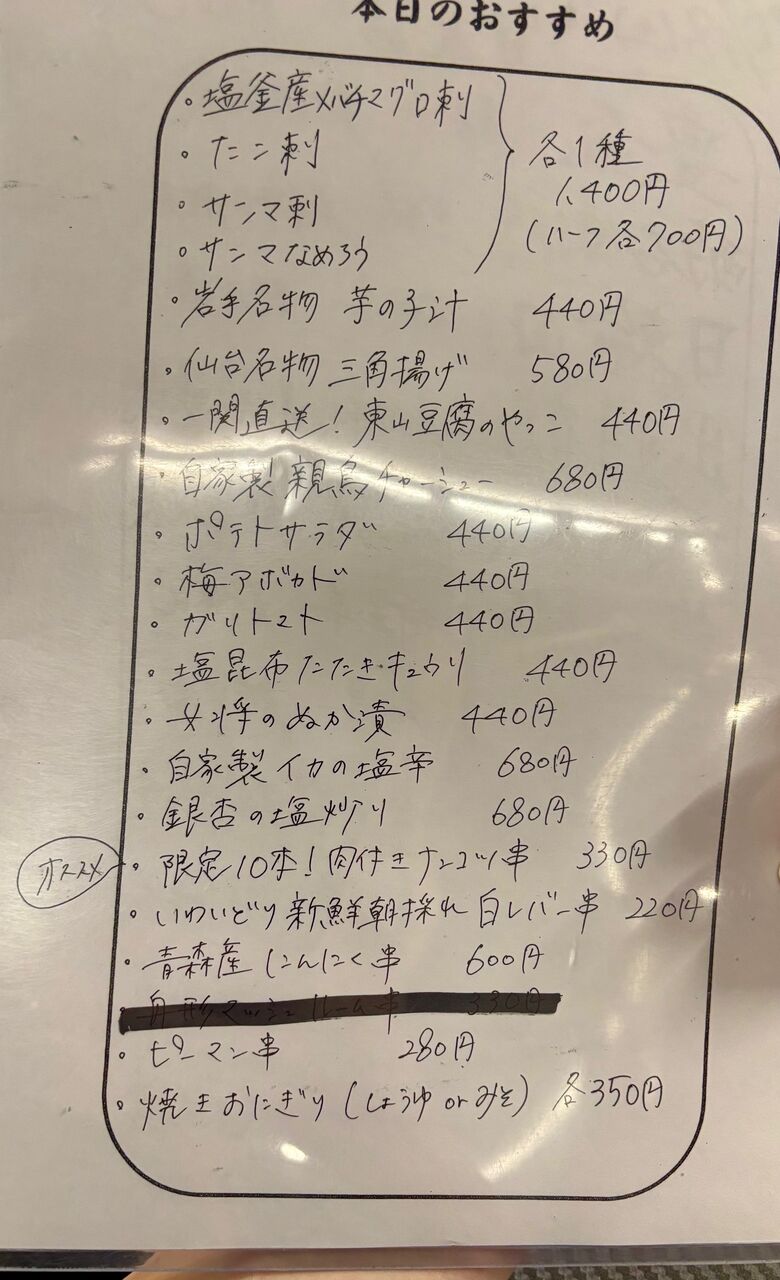 本日のおすすめ
・塩釜産メバチマグロ刺
・たこ刺
・サンマ刺
・サンマなめろう
各1種
1,400円
(ハーフ各700円)
・岩手名物 芋の子汁 440円
・仙台名物 三角揚げ 580円
・一関直送!東山豆腐のやっこ 440円
・自家製 親鳥チャーシュー 680円
・ポテトサラダ 440円
・梅アボカド 440円
・ガリトマト 440円
・塩昆布たたきキュウリ 440円
・女将のぬか漬 440円
・自家製イカの塩辛 680円
・銀杏の塩炒り 680円
オススメ
・限定10本!肉付きナンコツ串 330円
・いわいどり新鮮朝採れ白レバー串 220円
・青森産にんにく串 600円
・舟形マッシュルーム串 330円
・ピーマン串 280円
・焼きおにぎり(しょうゆ or みそ) 各350円